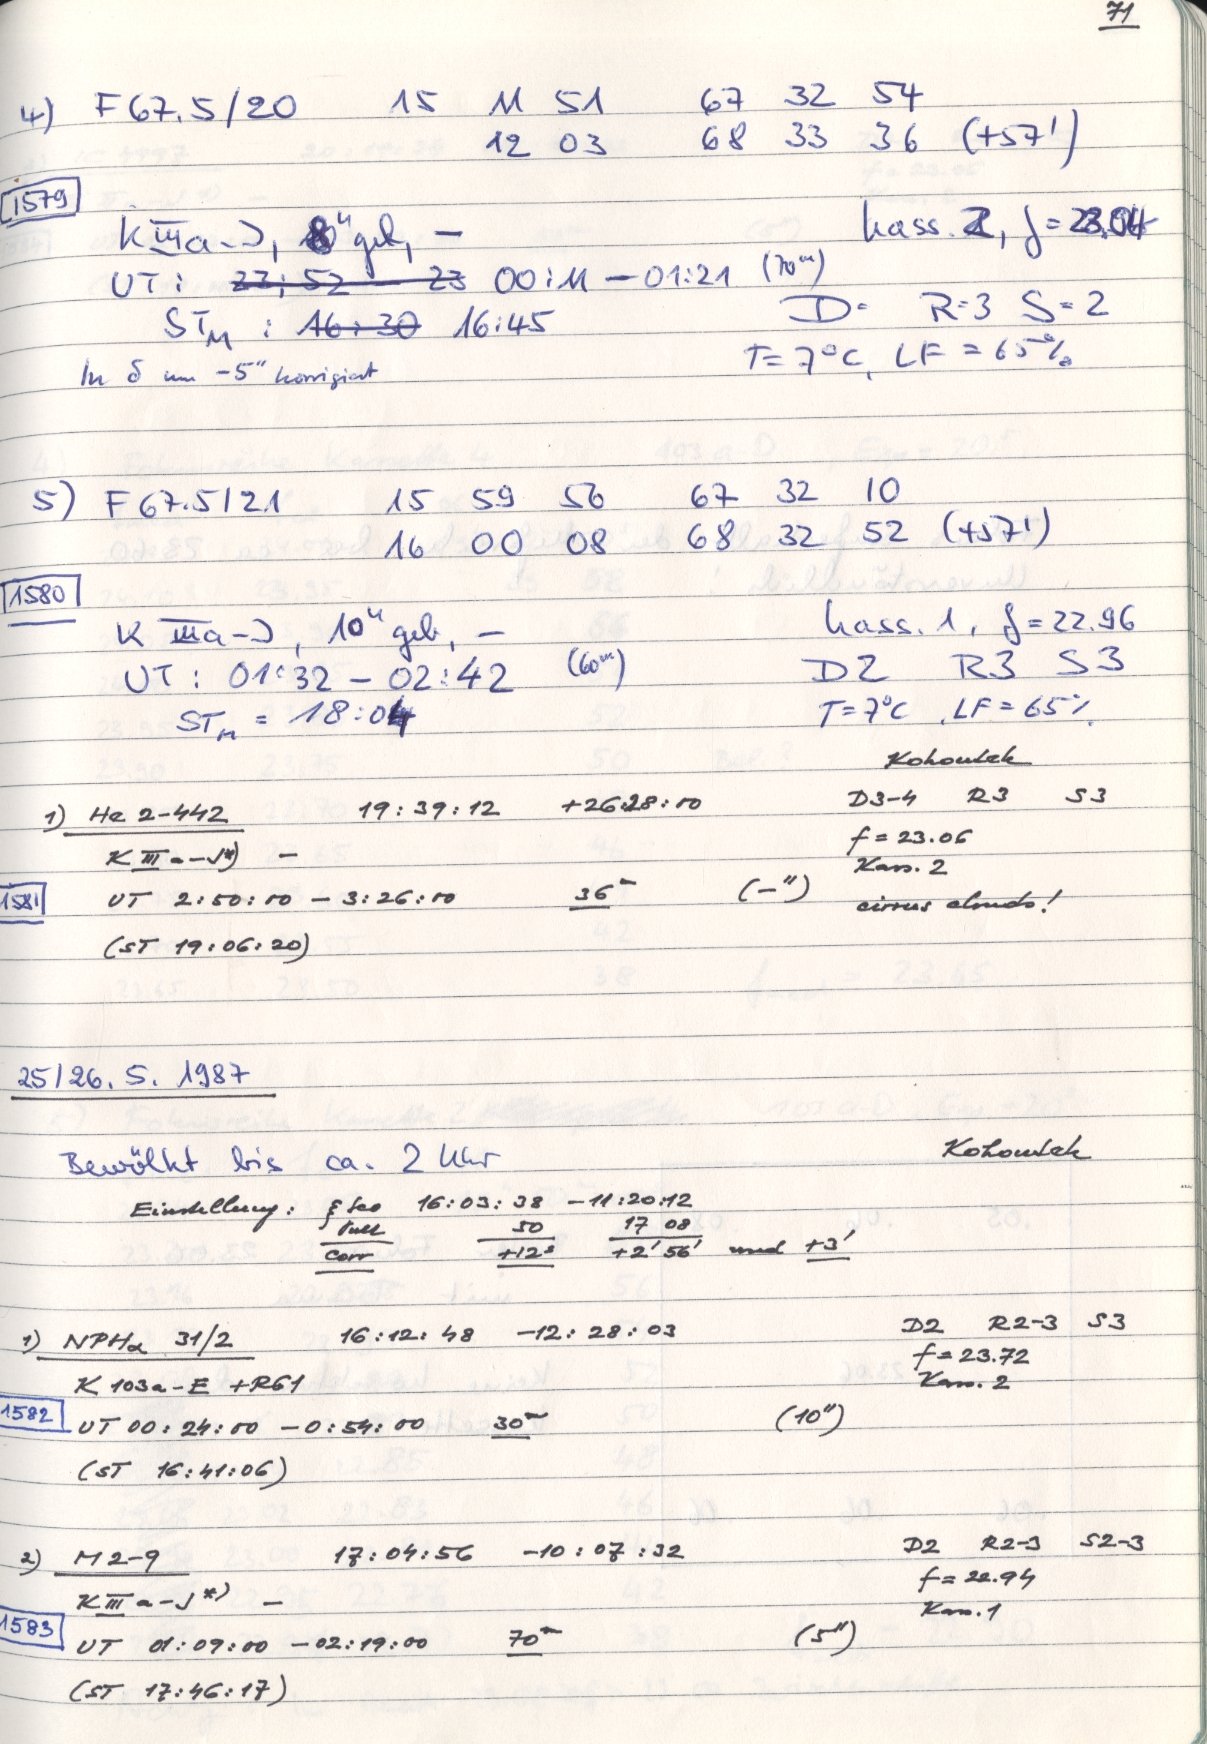 71
4) F 67.5/20 15 11 51 67 32 54
12 03 68 33 36 (+57')
1579
K IIIa-J, 8" geb, — Kass. 2, f = 23.04
UT: 00:11 — 01:21 (70m)
STM : 16:30 16:45 D= R=3 S=2
In δ um -5" korrigiert T=7°C, LF = 65%
5) F 67.5/21 15 59 56 67 32 10
16 00 08 68 32 52 (+57')
1580
K IIIa-J, 10" geb, — Kass. 1, f = 22.96
UT : 01:32 — 02:42 (60m) D2 R3 S3
STM = 18:04 T=7°C, LF = 65%
Kohoutek
1) He 2-442 19:39:12 +26:28:00 D3-4 R3 S3
f = 23.06
K IIIa-J*) — Kass. 2
1581 UT 2:50:00 — 3:26:00 36m (—") cirrus clouds!
(ST 19:06:20)
25/26. 5. 1987
Bewölkt bis ca. 2 Uhr Kohoutek
Einstellung: ξ Sco 16:03:38 -11:20:12
50 17 08
corr +12s +2'56' und +3'
1) NPHα 31/2 16:12:48 -12:28:03 D2 R2-3 S3
f = 23.72
K 103a-E +RG1 Kass. 2
1582 UT 00:24:00 — 0:54:00 30m (10")
(ST 16:41:06)
2) M 2-9 17:04:56 -10:07:32 D2 R2-3 S2-3
f = 22.94
K IIIa-J*) — Kass. 1
1583 UT 01:09:00 — 02:19:00 70m (5")
(ST 17:46:17)